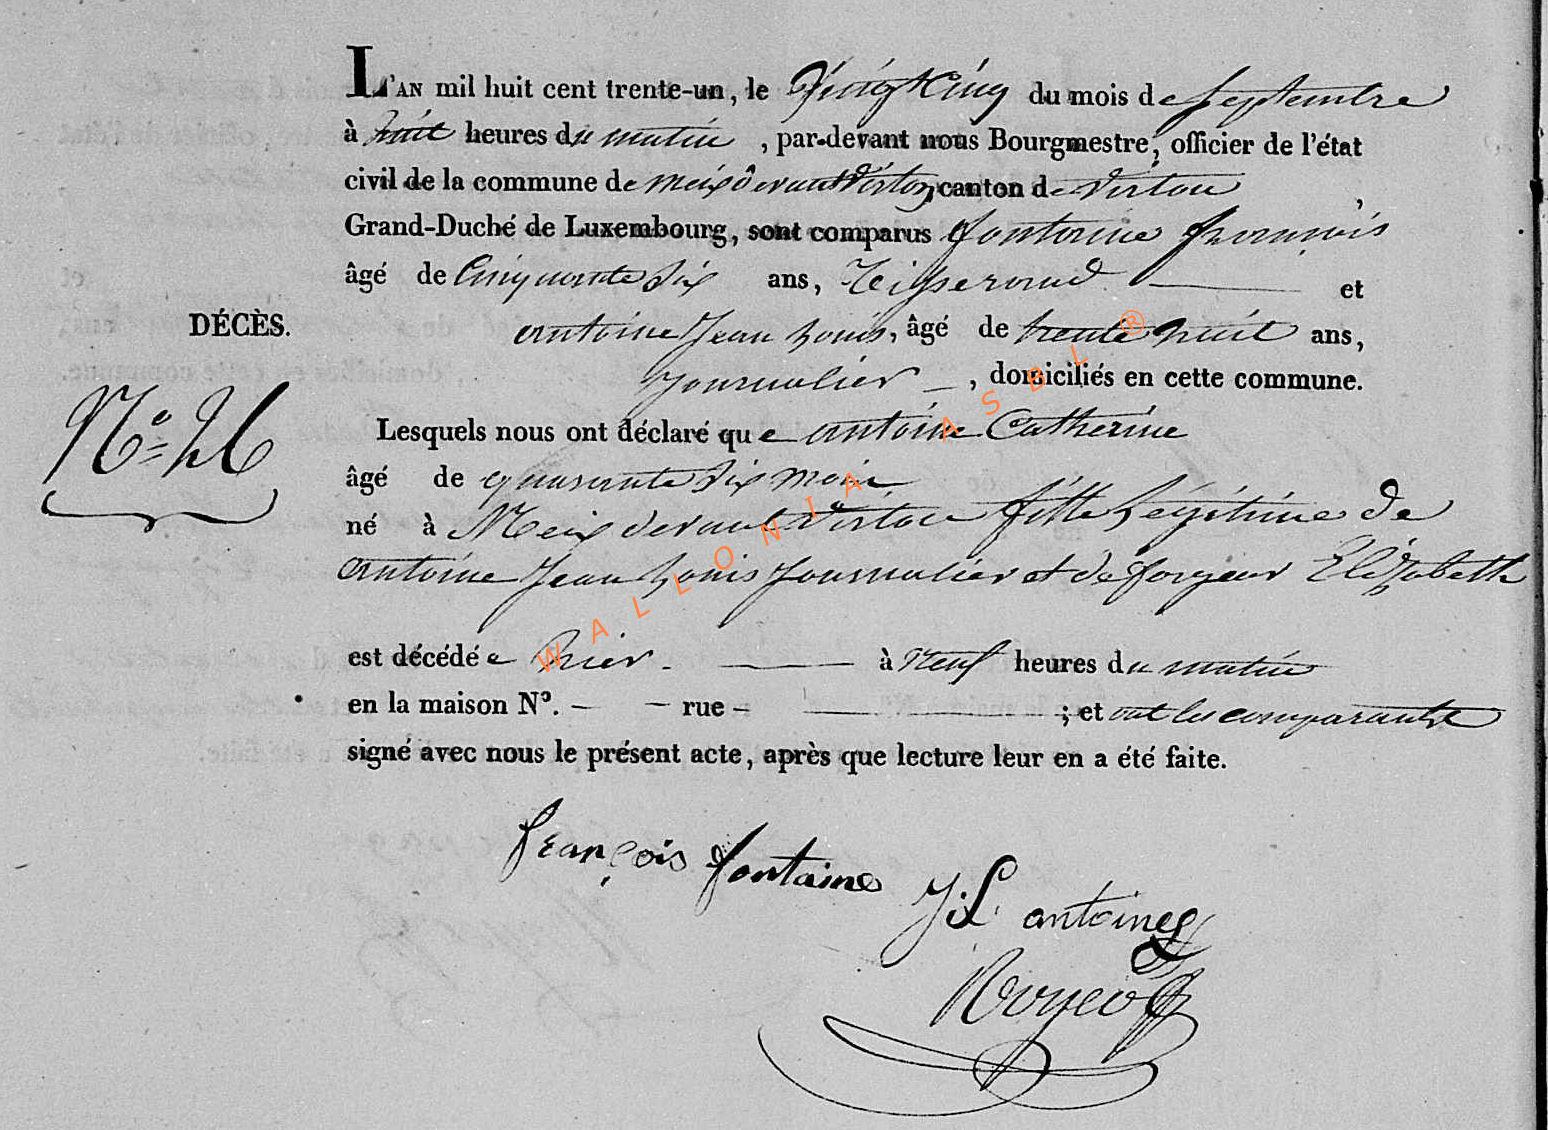 L'AN mil huit cent trente-un, le Vingt Cinq du mois de Septembre
à huit heures du matin, par-devant nous Bourgmestre, officier de l'état
civil de la commune de Meix devant Virton, canton de Virton
Grand-Duché de Luxembourg, sont comparus fontaine françois
âgé de Cinquante Six ans, Tisserand et
DÉCÈS.
antoine Jean Louis, âgé de trente huit ans,
Journalier, domiciliés en cette commune.
N° 26
Lesquels nous ont déclaré que antoine Catherine
âgé de quarante Six mois
né à Meix devant Virton fille Légitime de
antoine Jean Louis Journalier et de forgeur Elizabeth
est décédée hier à neuf heures du matin
en la maison N°. — — rue — ; et ont les comparants
signé avec nous le présent acte, après que lecture leur en a été faite.
françois fontaine
J L antoine
WALLONIA ASBL ®